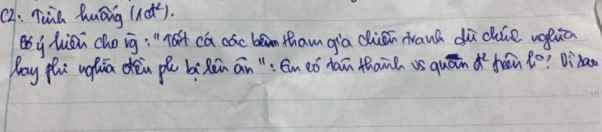 C2: Tình huống (1đ²).
Có ý kiến cho rg: "Tất cả các bên tham gia chiến tranh dù chính nghĩa
hay phi nghĩa đều pk bị lên án": Em có tán thành vs quan đ² trên k°? Vì sao